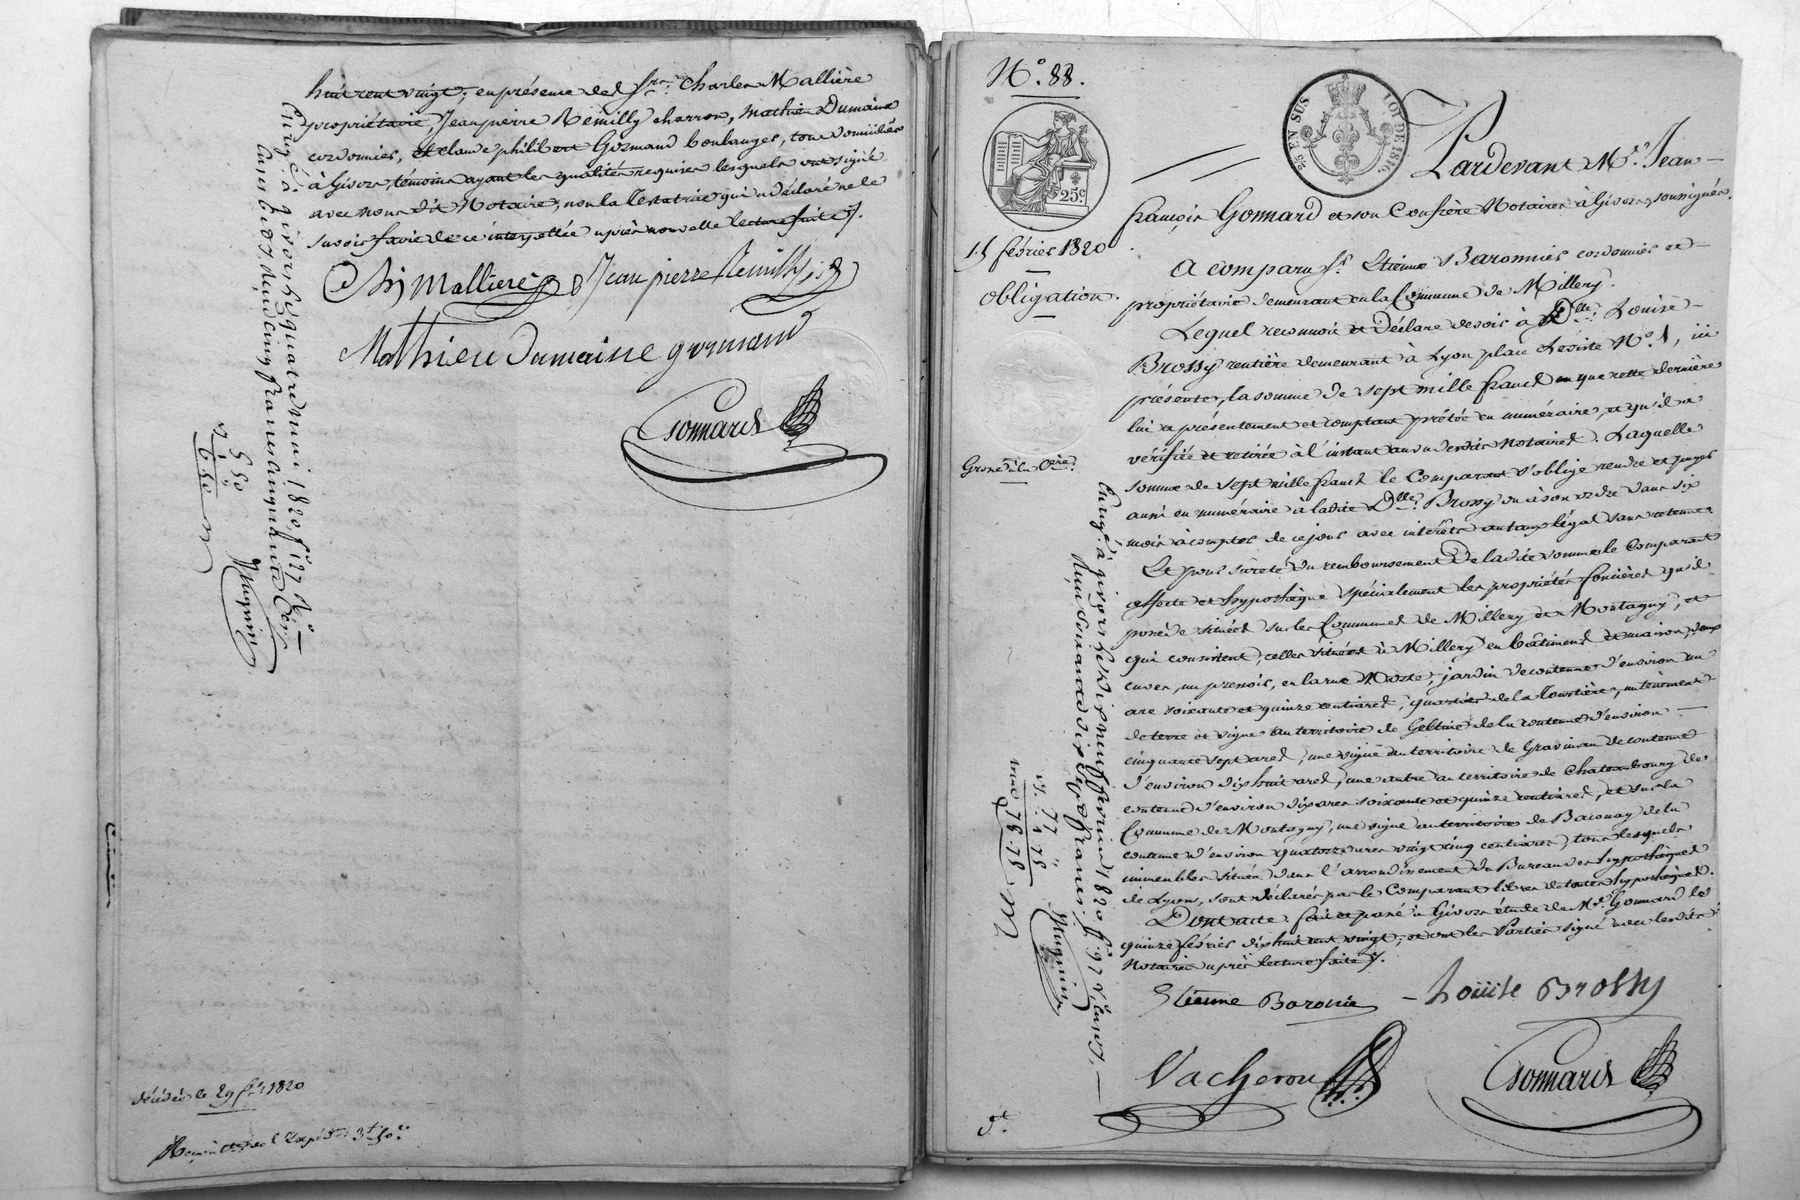 huit cent vingt; en présence des Srs Charles Mallière
propriétaire, Jean pierre Remilly charron, Mathieu Dumaine
cordonnier, et Claude philibert Gormand boulanger, tous domiciliés
à Givors, témoins ayant les qualités requises lesquels ont signé
avec nous dit Notaire, non la Testatrice qui a déclaré ne le
savoir faire de ce interpellée après nouvelle lecture faite.
Ch Mallière Jean pierre Remilly
Mathieu Dumaine gormand
Gonnard
Enregé à givors le quatre mai 1820 f° 127 R°
Cases 6 et 7, Reçu cinq francs cinquante cens
5 50
6 50
Muguin
décédée le 29 1820
N° 88.
25 EN SUS
LOI DE 1816
25c
15 février 1820
Obligation.
Grosse à la Cière
Pardevant Me Jean
françois Gonnard et son Confrère Notaires à Givors, soussignés.
A comparu Sr Etienne Baronnier cordonnier et
propriétaire demeurant en la Commune de Millery.
Lequel reconnoit et déclare devoir à Dlle Louise
Brossy rentière demeurant à Lyon place Leviste N° 1, ici
présente, la somme de sept mille francs que cette dernière
lui a présentement et comptant prêtée en numéraire, et qu'il a
vérifiée et retirée à l'instant au vu desdits Notaires. Laquelle
somme de sept mille francs le Comparant s'oblige rendre et payer
aussi en numéraire à ladite Dlle Brossy ou à son ordre dans six
mois à compter de ce jour avec intérêts au taux légal sans retenue.
Et pour sureté du remboursement de ladite somme le Comparant
affecte et hypothèque spécialement les propriétés foncières qu'il
possède situées sur les Communes de Millery et Montagny, et
qui consistent, celles situées à Millery en bâtiments et maison, deux
cuves, un pressoir, en la rue jardin de contenue d'environ un
are soixante et quinze centiares, quartier de la un tènement
de terre et vigne au territoire de de la contenue d'environ
cinquante sept ares; une vigne au territoire de Gravinan de contenue
d'environ dix huit ares; une autre au territoire de Chateaubourg de
contenue d'environ dix ares soixante et quinze centiares, et sur la
Commune de Montagny, une vigne au territoire de de la
contenue d'environ quatorze ares vingt cinq centiares; tous lesquels
immeubles situés dans l'arrondissement du Bureau des hypothèques
de Lyon, sont déclarés par le Comparant libres de toutes hypothèques.
Dont acte. fait et passé à Givors étude de Me Gonnard le
quinze février dix huit cent vingt; et ont les Parties signé avec lesdits
Notaires après lecture faite.
Etienne Baronie Louise Brossy
Vacheron Gonnard
Enregé à givors le dix neuf février 1820 f° 97 V°
Reçu soixante dix sept francs
77 "
Muguin